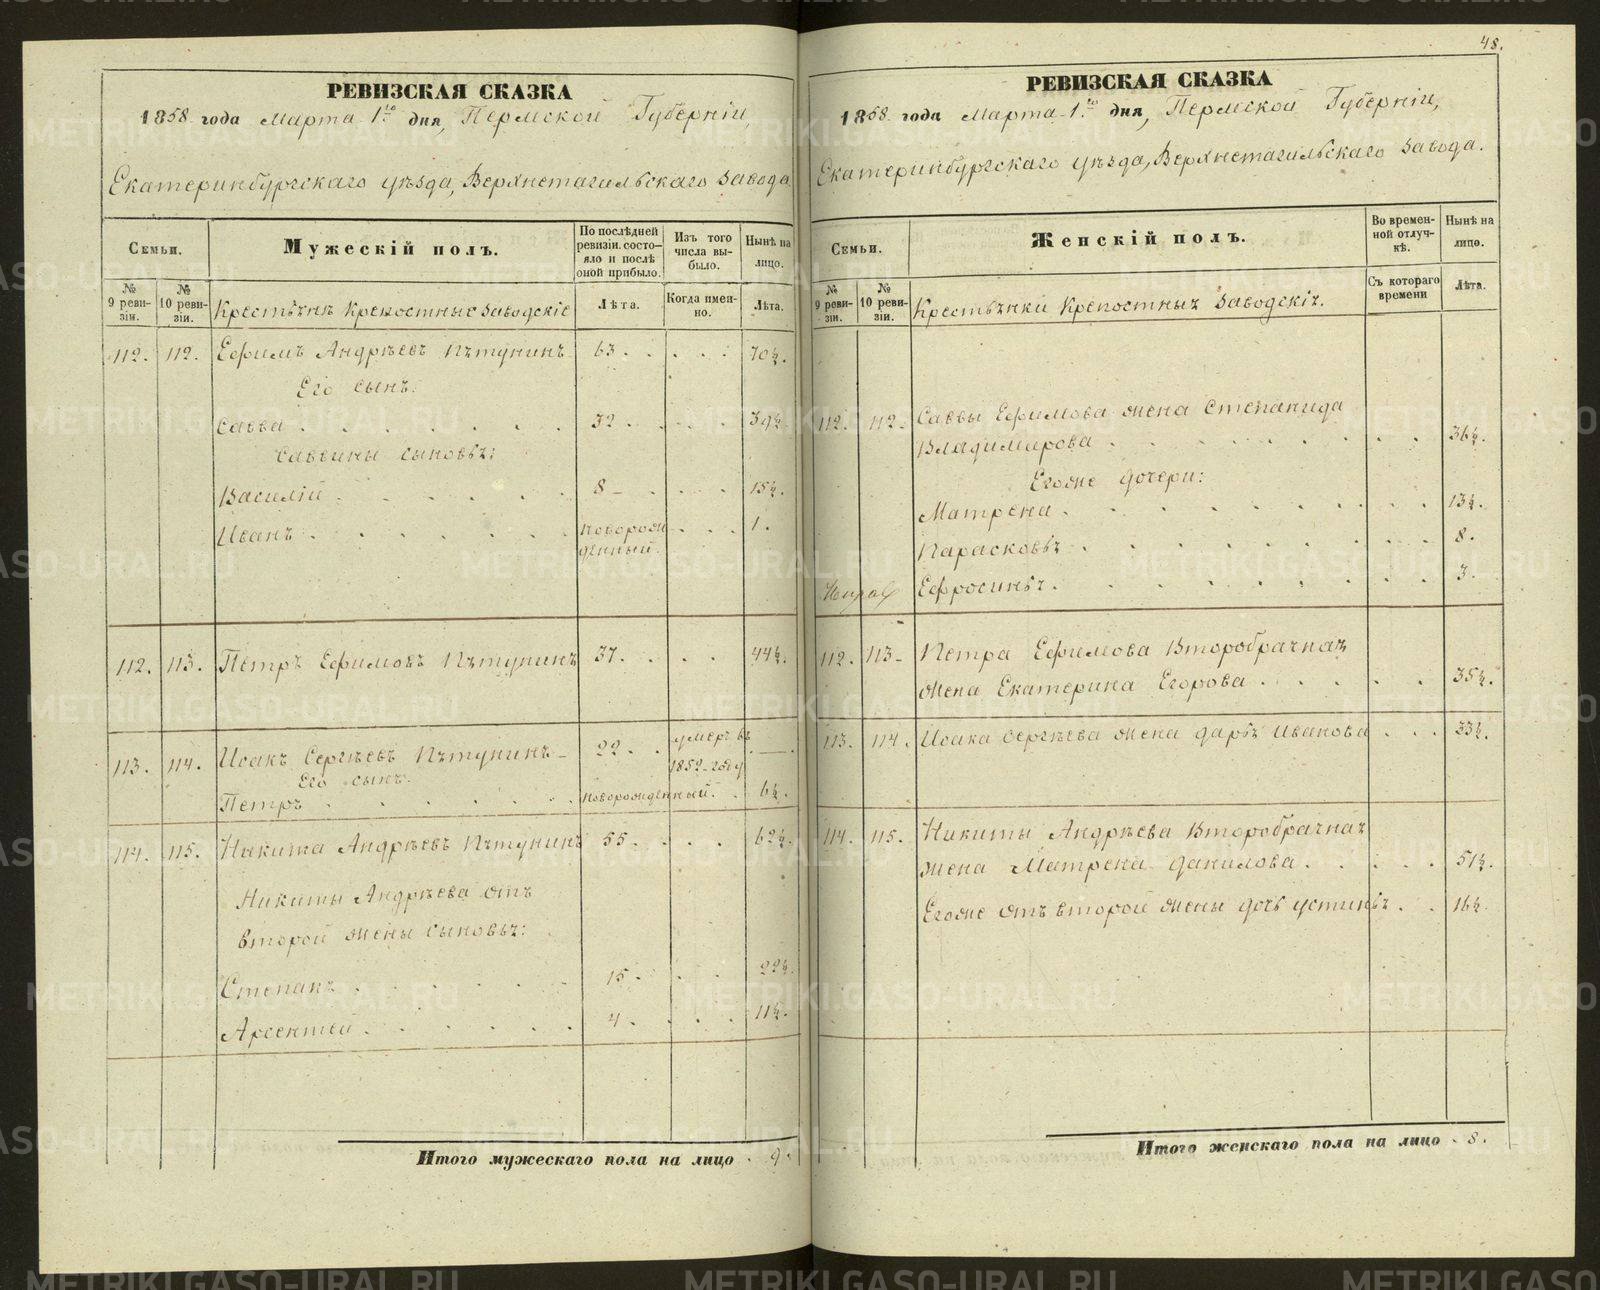 48.
РЕВИЗСКАЯ СКАЗКА
1858 года Марта 1го дня, Пермской Губерніи,
Екатеринбургскаго уѣзда, Верхнетагильскаго завода
Семьи.
Мужескій полъ.
По послѣдней ревизіи состояло и послѣ оной прибыло.
Изъ того числа выбыло.
Нынѣ на лицо.
№ 9 ревизіи.
№ 10 ревизіи.
Крестьяне крепостные заводскіе
Лѣта.
Когда именно.
Лѣта.
112. 112. Ефимъ Андрѣевъ Пѣтунинъ 63. 70½.
Его сынъ:
Савва 32. 39½.
Саввины сыновья:
Василій 8 15½.
Иванъ новорожденный. 1.
112. 113. Петръ Ефимовъ Пѣтунинъ 37. 44½.
113. 114. Исакъ Сергѣевъ Пѣтунинъ 22. умеръ въ 1852 году
Его сынъ.
Петръ новорожденный. 6½.
114. 115. Никита Андрѣевъ Пѣтунинъ 55. 62½.
Никиты Андрѣева отъ
второй жены сыновья:
Степанъ 15. 22½.
Арсентей 4. 11½.
Итого мужескаго пола на лицо 9.
РЕВИЗСКАЯ СКАЗКА
1858 года Марта 1го дня, Пермской Губерніи,
Екатеринбургскаго уѣзда, Верхнетагильскаго завода.
Семьи.
Женскій полъ.
Во временной отлучкѣ.
Нынѣ на лицо.
№ 9 ревизіи.
№ 10 ревизіи.
Крестьянки крепостныя заводскія.
Съ котораго времени
Лѣта.
112. 112. Саввы Ефимова жена Степанида
Владимирова 36½.
Егоже дочери:
Матрена 13½.
Парасковья 8.
Ефросинья. 3.
112. 113. Петра Ефимова Второбрачная
жена Екатерина Егорова 35½.
113. 114. Исака Сергѣева жена Дарья Иванова 33½.
114. 115. Никиты Андрѣева Второбрачная
жена Матрена Данилова. 51½.
Егоже отъ второй жены дочь Устинья. 16½.
Итого женскаго пола на лицо 8.
METRIKI.GASO-URAL.RU